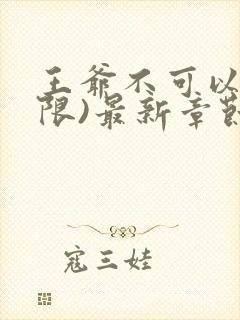 王爷不可以
限)最新章节
寇三娃